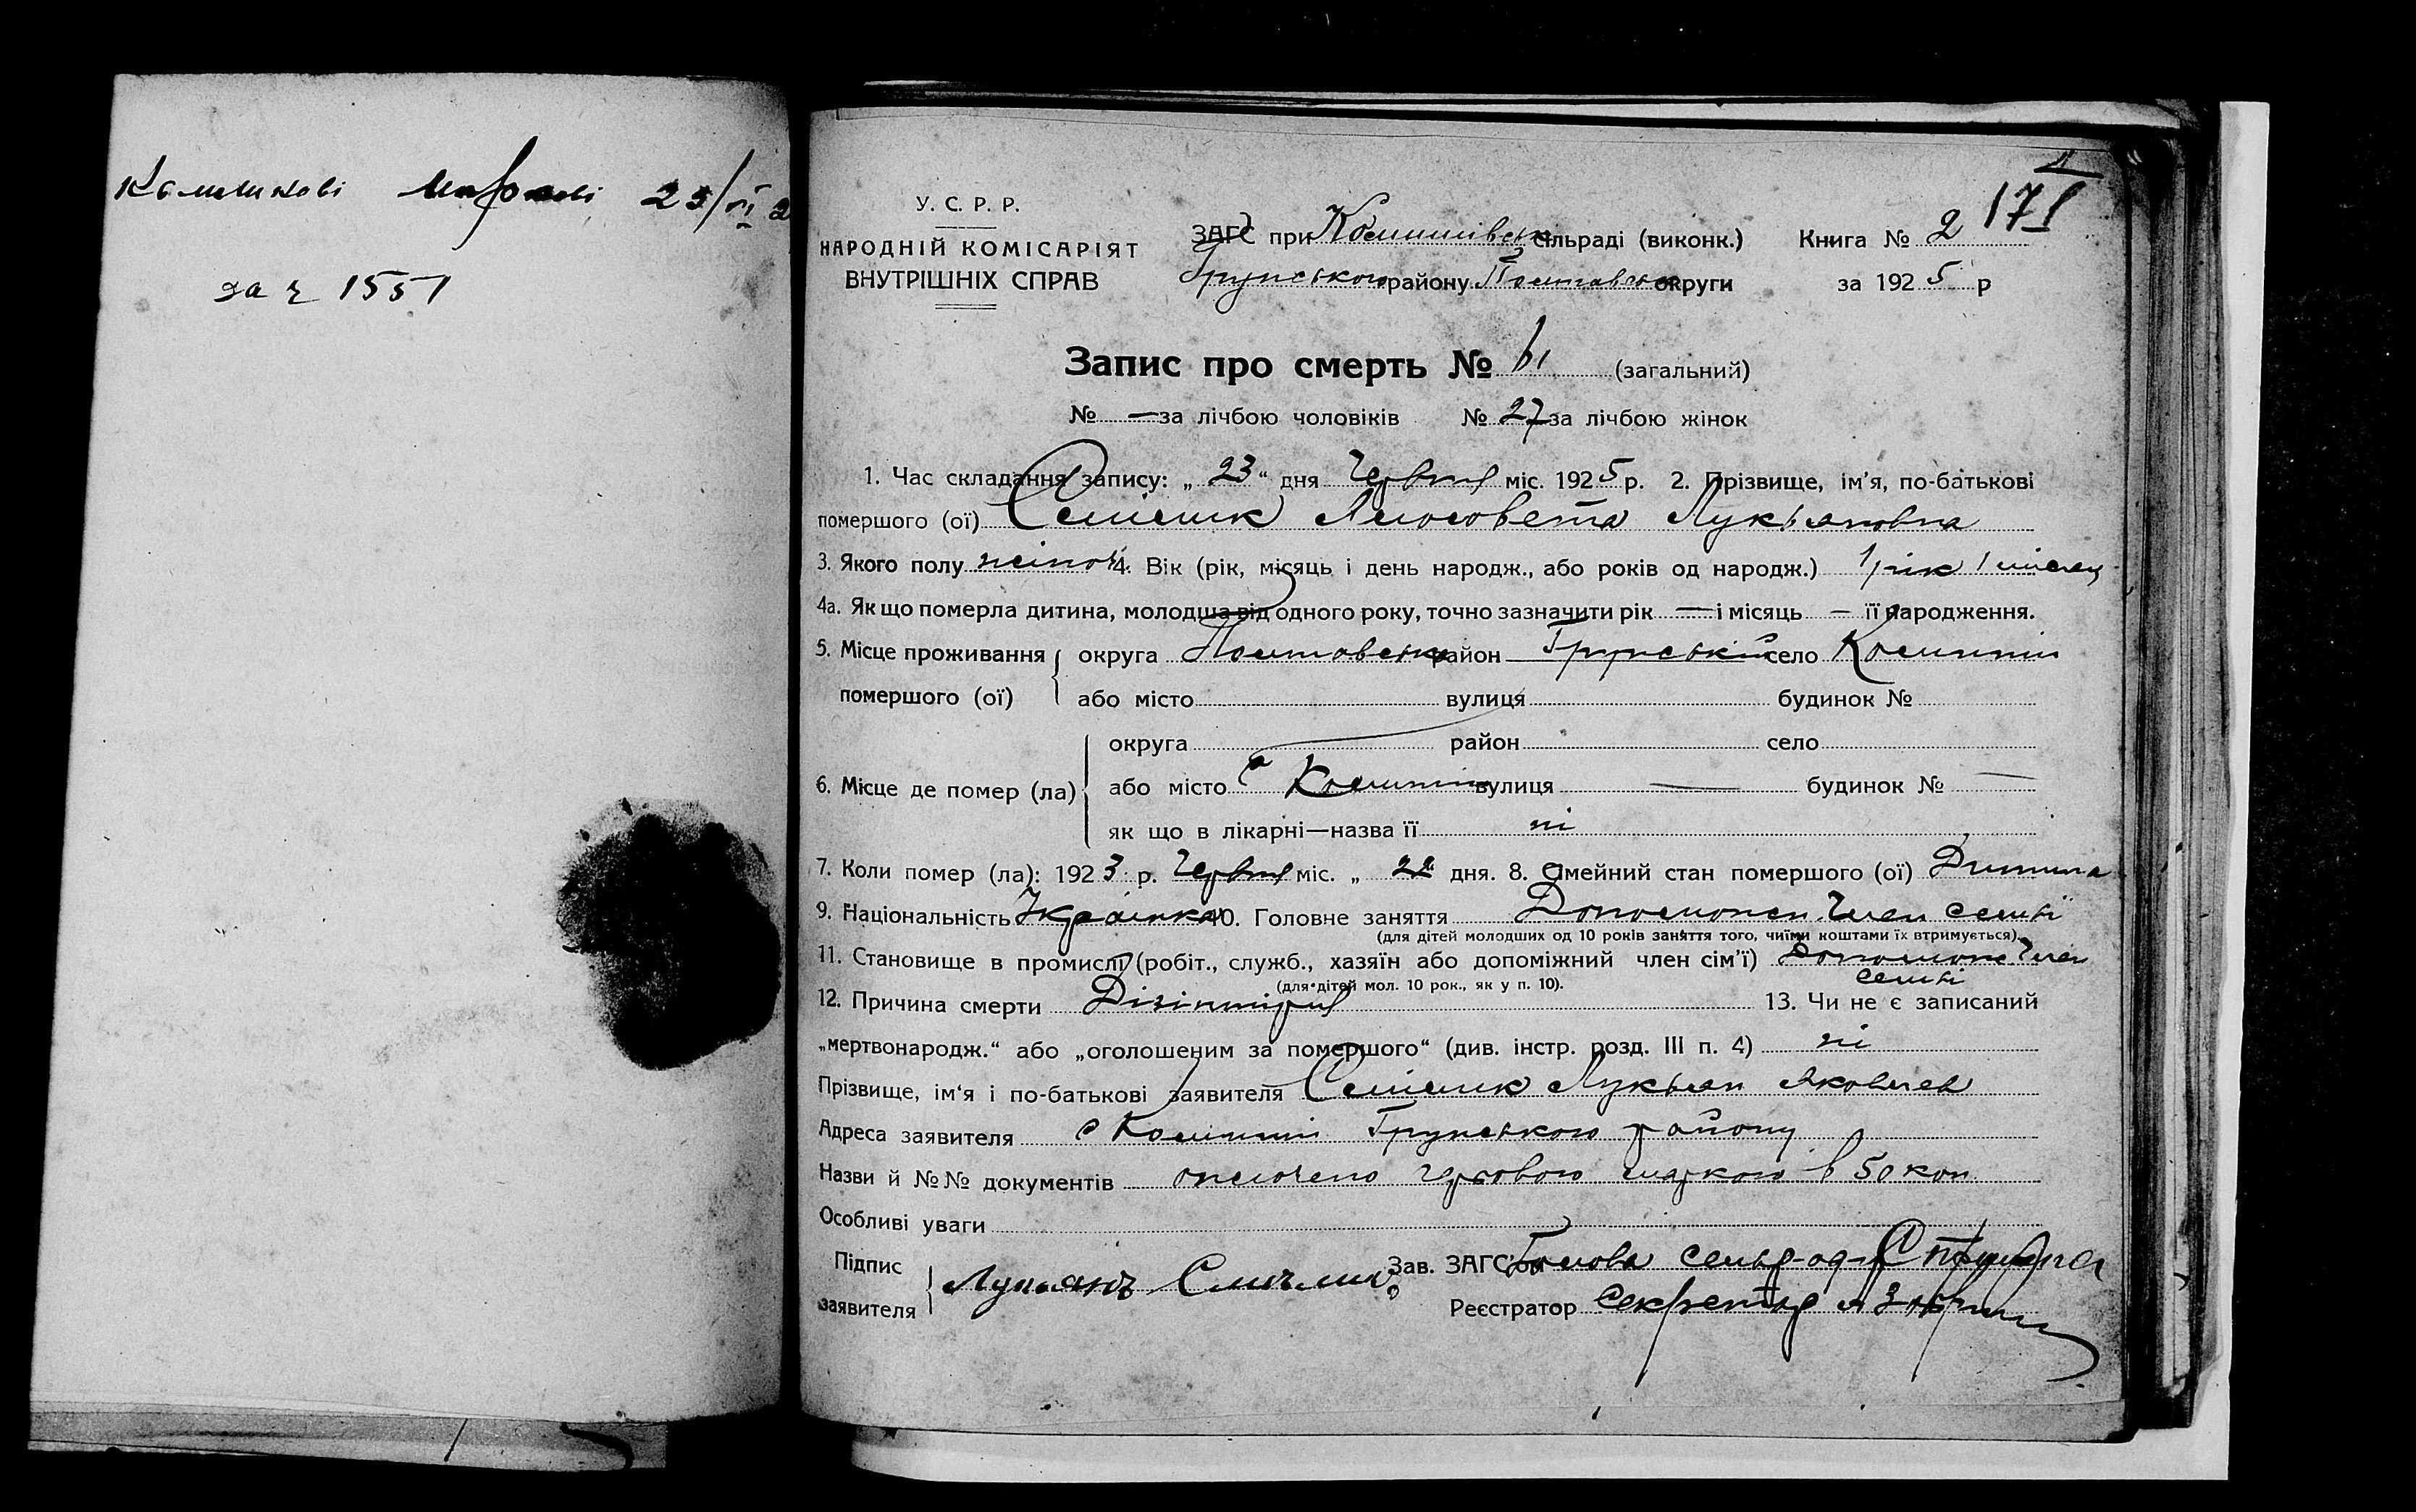 23/VI
за ч 1551
171
У. С. Р. Р.
НАРОДНІЙ КОМІСАРІЯТ
ВНУТРІШНІХ СПРАВ
ЗАГС при Комишівськ сільраді (виконк.) Книга № 2
Грунського району Полтавської округи за 1925 р
Запис про смерть № 61 (загальний)
№ — за лічбою чоловіків № 27 за лічбою жінок
1. Час складання запису: „ 23 “ дня Червня міс. 1925 р. 2. Прізвище, ім’я, по-батькові
помершого (ої) Лукьяновна
3. Якого полу жіноч 4. Вік (рік, місяць і день народж., або років од народж.) 1 рік 1 місяц
4а. Як що померла дитина, молодша від одного року, точно зазначити рік — і місяць — її народження.
5. Місце проживання округа Полтавська район Грунський село Комиші
помершого (ої) або місто вулиця будинок №
округа район село
6. Місце де помер (ла) або місто с Комиші вулиця — будинок № —
як що в лікарні—назва її ні
7. Коли помер (ла): 1923 р. Червня міс. „ 22 дня. 8. Сімейний стан помершого (ої) Дитина
9. Національність Українка 10. Головне заняття Допоможн. Член семьї
(для дітей молодших од 10 років заняття того, чиїми коштами їх втримується).
11. Становище в промислі (робіт., служб., хазяїн або допоміжний член сім’ї) Допоможн. Член
семьї
(для дітей мол. 10 рок., як у п. 10).
12. Причина смерти Дізінтирия 13. Чи не є записаний
„мертвонародж.“ або „оголошеним за помершого“ (див. інстр. розд. III п. 4) ні
Прізвище, ім‘я і по-батькові заявителя Лукьян Яковлев
Адреса заявителя с Комиші Грунського району
Назви й №№ документів оплочено гербовою маркою в 50 коп.
Особливі уваги
Підпис
заявителя Лукьянъ
Зав. ЗАГС’ом Голова
Реєстратор Секретар